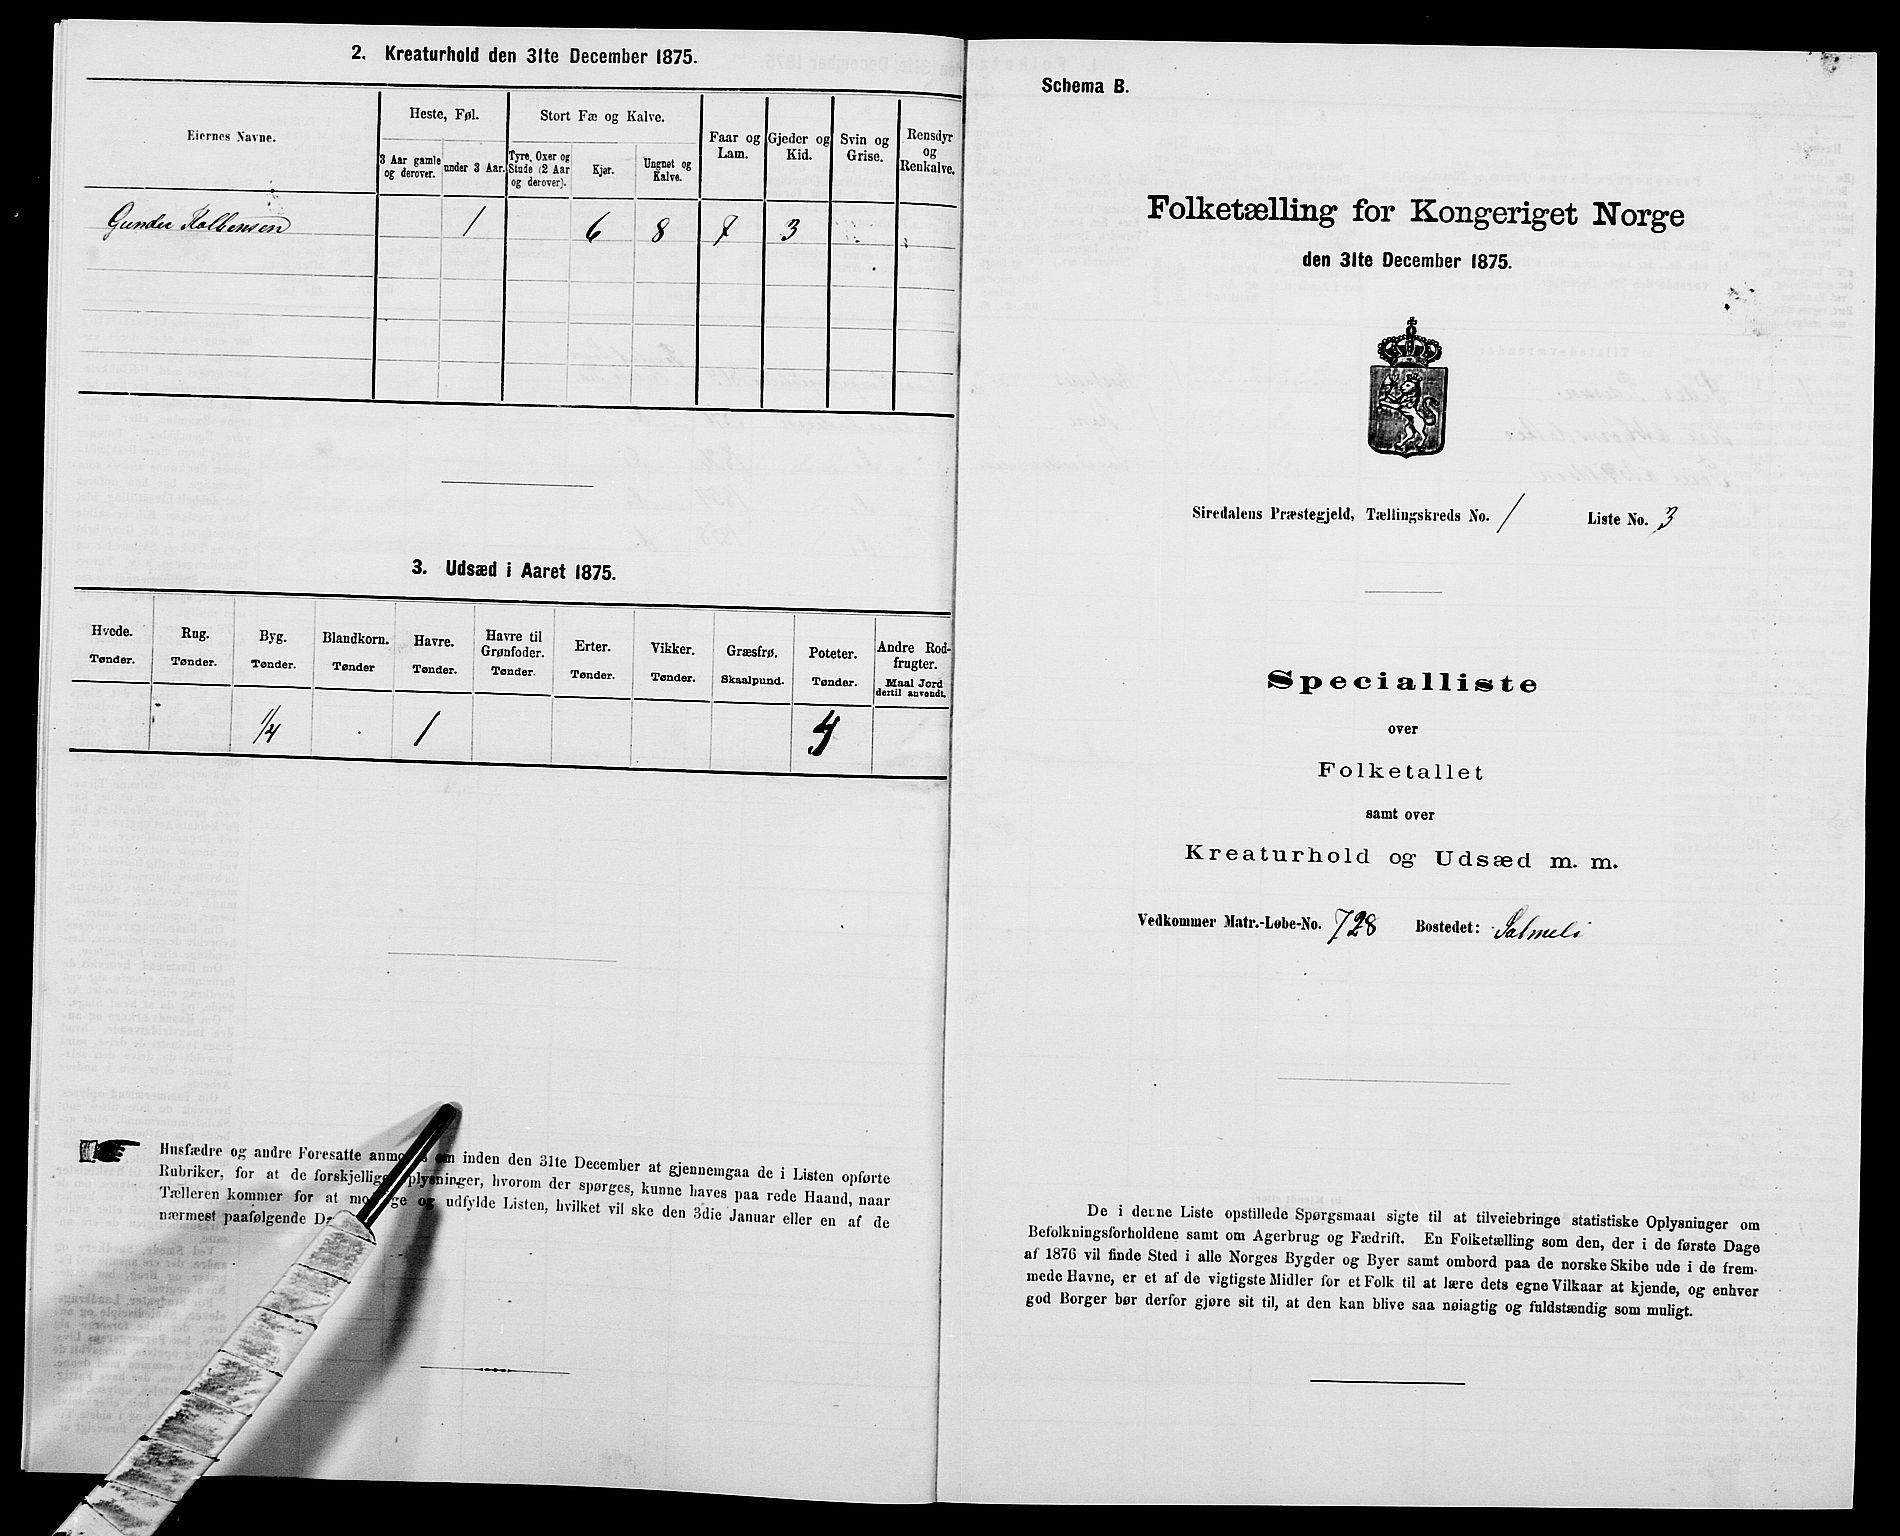 2. Kreaturhold den 31te December 1875.
Eiernes Navne.
Heste, Føl.
Stort Fæ og Kalve.
Faar og Lam.
Gjeder og Kid.
Svin og Grise.
Rensdyr og Renkalve.
3 Aar gamle og derover.
under 3 Aar.
Tyre, Oxer og Stude (2 Aar og derover).
Kjør.
Ungnøt og Kalve.
Gunder 1 6 8 7 3
3. Udsæd i Aaret 1875.
Hvede. Rug. Byg. Blandkorn. Havre. Havre til Grønfoder. Erter. Vikker. Græsfrø. Poteter. Andre Rodfrugter.
Tønder. Tønder. Tønder. Tønder Tønder. Tønder. Tønder. Tønder. Skaalpund. Tønder. Maal Jord dertil anvendt.
1/4 1
Husfædre og andre Foresatte inden den 31te December at gjennemgaa de i Listen opførte
Rubriker, for at de forskjellige Oplysninger, hvorom der spørges, kunne haves paa rede Haand, naar
Tælleren kommer for at modtage og udfylde Listen, hvilket vil ske den 3die Januar eller en af de
nærmest paafølgende
Schema B.
Folketælling for Kongeriget Norge
den 31te December 1875.
Siredalens Præstegjeld, Tællingskreds No. 1 Liste No. 3
Specialliste
over
Folketallet
samt over
Kreaturhold og Udsæd m. m.
Vedkommer Matr.-Løbe-No. 728 Bostedet: Salmeli
De i denne Liste opstillede Spørgsmaal sigte til at tilveiebringe statistiske Oplysninger om
Befolkningsforholdene samt om Agerbrug og Fædrift. En Folketælling som den, der i de første Dage
af 1876 vil finde Sted i alle Norges Bygder og Byer samt ombord paa de norske Skibe ude i de frem-
mede Havne, er et af de vigtigste Midler for et Folk til at lære dets egne Vilkaar at kjende, og enhver
god Borger bør derfor gjøre sit til, at den kan blive saa nøiagtig og fuldstændig som muligt.